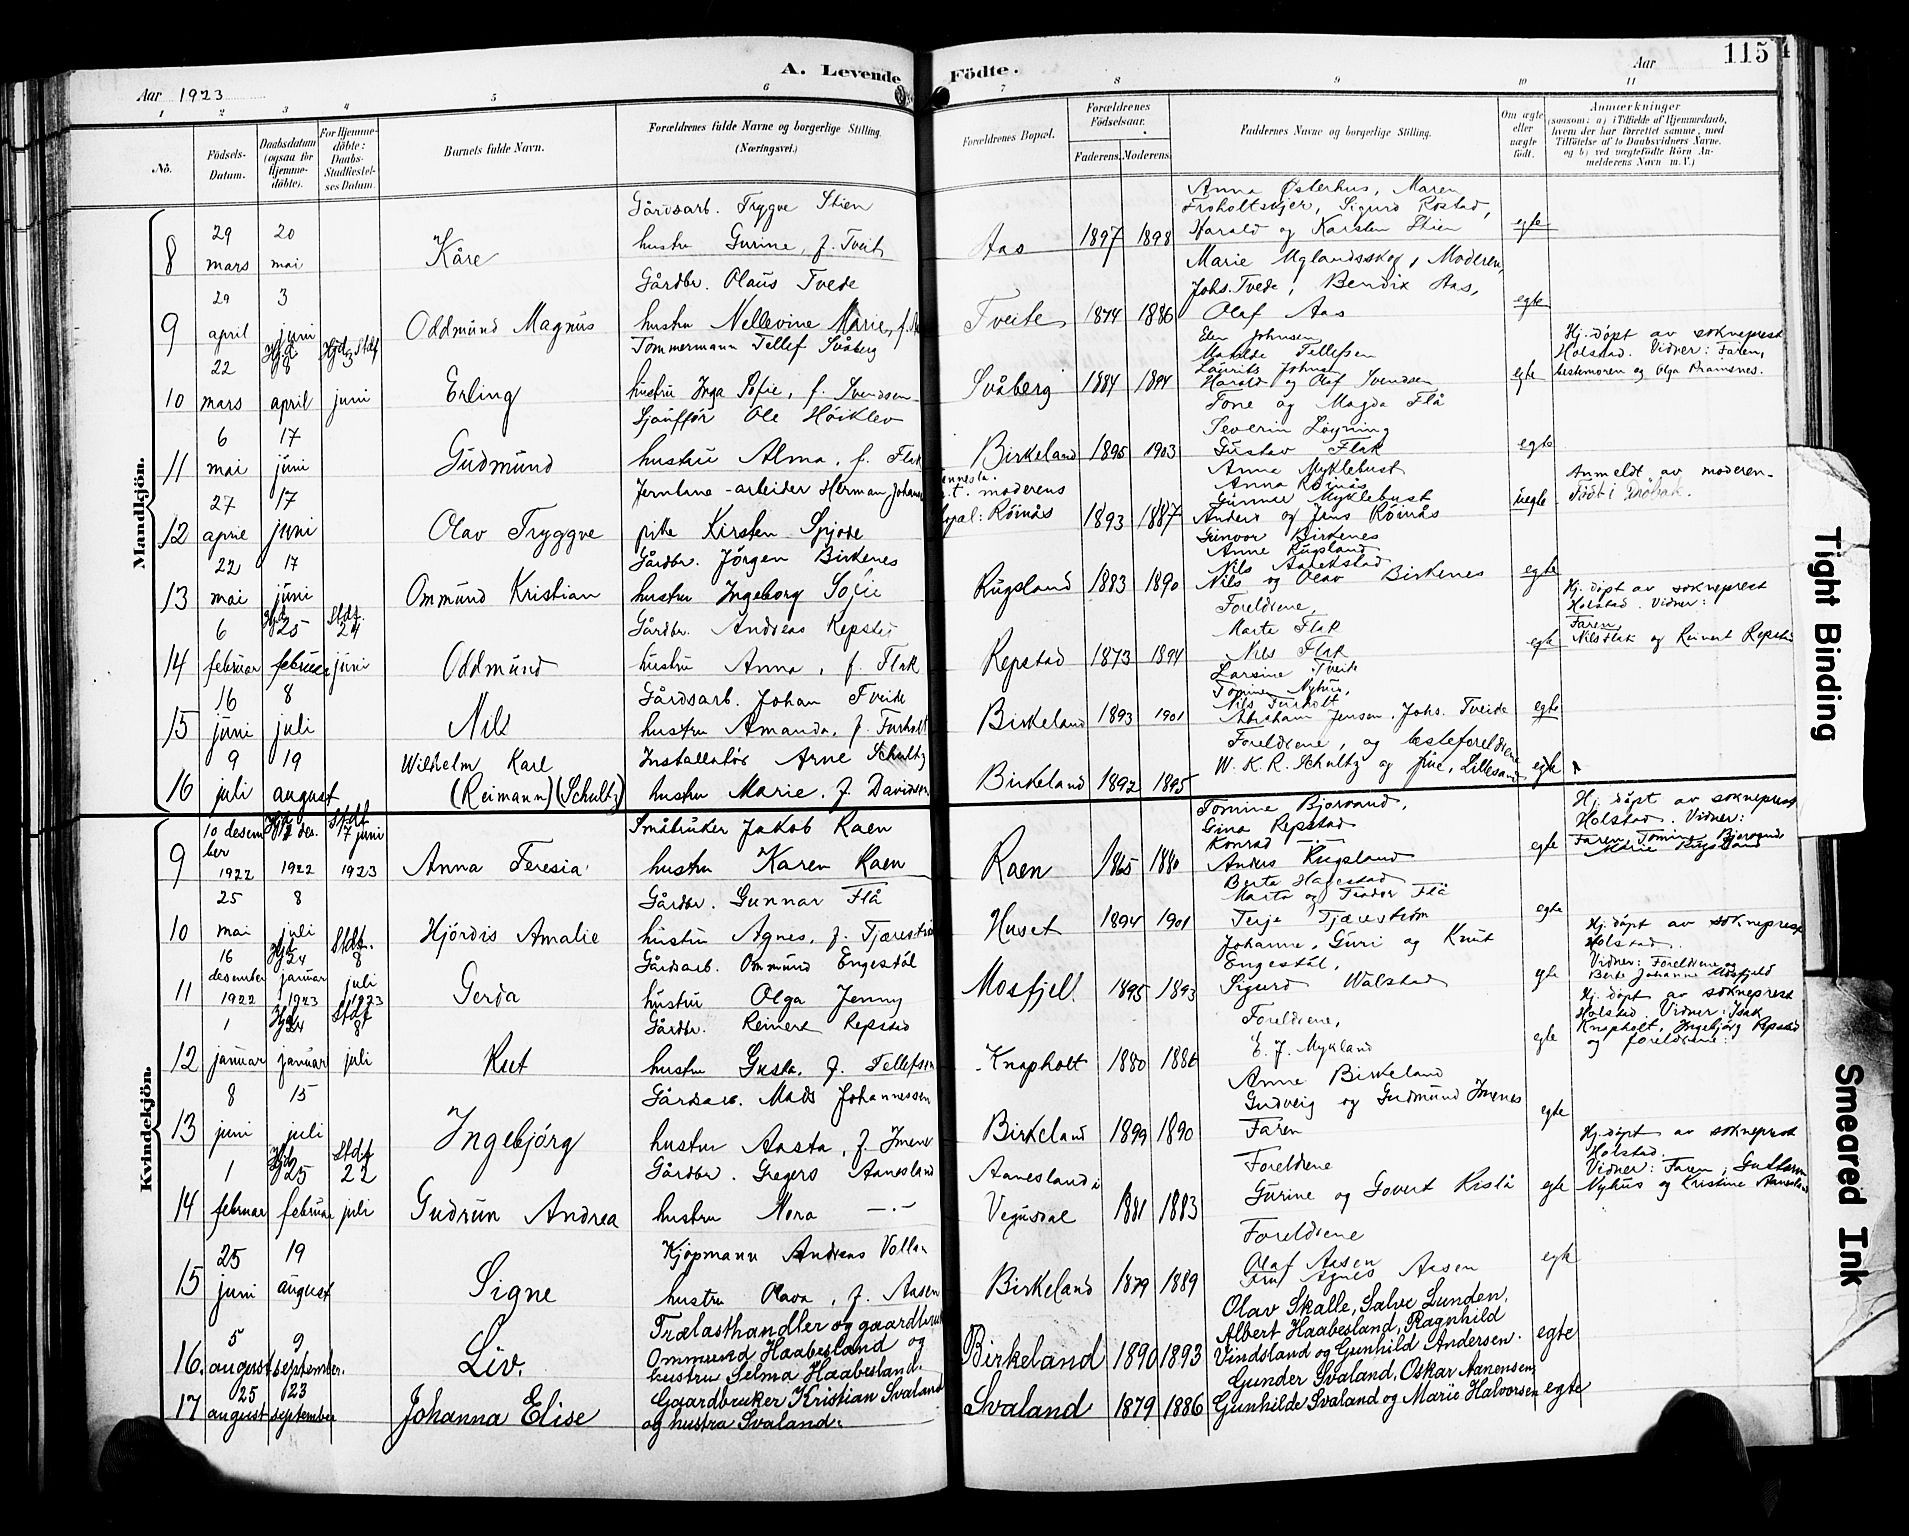 A. Levende Födte.
115
Aar 1923
Aar
1 2 3 4 5 6 7 8 9 10 11
No.
Födsels-Datum.
Daabsdatum (ogsaa for Hjemme-döbte).
For Hjemme-döbte: Daabs-Stadfæstel-ses Datum.
Barnets fulde Navn.
Forældrenes fulde Navne og borgerlige Stilling. (Næringsvei.)
Forældrenes Bopæl.
Forældrenes Födselsaar.
Faderens. Moderens.
Faddernes Navne og borgerlige Stilling.
Om ægte eller uægte födt.
Anmærkninger
(saasom: a) i Tilfælde af Hjemmedaab, hvem der har forrettet samme, med Tilföielse af to Daabsvidners Navne, og b) ved uægtefödte Börn An-melderens Navn m. V.)
Mandkjön.
8
29 mars
20 mai
Kåre
Gårdsarb. Trygve Stien
hustru Gurine, f. Tveit
Aas
1897 1898
Anna Østerhus, Maren
Froholtskjer, Sigurd Rostad,
Harald og Karsten Stien
egte
9
29 april
3 juni
Oddmund Magnus
Gårdbr. Olaus Tvede
hustru Nellevine Marie, f.
Tveite
1874 1886
Marie Uglandsskog, Moderen,
Johs. Tvede, Bendix Aas,
Olaf Aas
egte
10
22 mars
Hjd 8 april
Hjd Stdf 3 juni
Erling
Tømmermann Tellef Svåberg
hustru Inga Sofie, f. Svendsen
Svåberg
1884 1894
Elen Johnsen
Matilde Tellefsen
Laurits Johns
Harald og Olaf Svendsen
egte
Hj. døpt av sokneprest
Holstad. Vidner: Faren,
bestemoren og Olga Dramsnes.
11
6 mai
17 juni
Gudmund
Sjauffør Ole Høiklev
hustru Alma, f. Flak
Birkeland
1895 1903
Tone og Magda Flå
Severin Løyning
Gustav Flak
egte
12
27 april
17 juni
Olav Tryggve
Jerntane-arbeider Herman Johans
pike Kirsten Spjode
p.t. moderens
bopæl: Röinås
1893 1887
Anna Myklebust
Anna Röinås
Gunnar Myklebust
Anders og Jens Röinås
uegte
Anmeldt av moderen.
Födt i Dröbak.
13
22 mai
17 juni
Ommund Kristian
Gårdbr. Jørgen Birkenes
hustru Ingeborg Sofie
Rugsland
1883 1890
Gunvor Birkenes
Anne Rugsland
Nils
Nils og Olav Birkenes
egte
14
6 februar
Hjd 25 februar
Stdf. 24 juni
Oddmund
Gårdbr. Andreas Repstad
hustru Anna, f. Flak
Repstad
1873 1894
Foreldrene,
Marta Flak
Nils Flak
egte
Hj. døpt av sokneprest
Holstad. Vidner:
Faren,
Nils Flak og Reinert Repstad
15
16 juni
8 juli
Nils
Gårdsarb. Johan Tveide
hustru Amanda, f. Furholt
Birkeland
1893 1901
Larsine Tveide
Tomine Nyhus,
Nils Furholt
Abraham Jensen, Johs. Tveide
egte
16
9 juli
19 august
Wilhelm Karl
(Reimann) (Schultz)
Installatør Arne Schultz
hustru Marie, f. Davidsen
Birkeland
1892 1895
Foreldrene, og besteforeldrene
W. K. R. Schultz og frue, Lillesand
egte
Kvindekjön.
9
10 desember 1922
Hjd. des. 1922
Stdf 17 juni 1923
Anna Teresia
Småbruker Jakob Raen
hustru Karen Raen
Raen
1865 1880
Tomine Bjorvand,
Gina Repstad
Konrad
Anders Rugsland
egte
Hj. døpt av sokneprest
Holstad. Vidner:
Faren, Tomine Bjorvand
Marie Rugsland
10
25 mai
8 juli
Hjördis Amalie
Gårdbr. Gunnar Flå
hustru Agnes, f. Tjærestr
Huset
1894 1901
Berta Hagestad
Marta og Teodor Flå
Terje Tjæreström
egte
11
16 desember 1922
Hjd. 24 januar 1923
Stdf. 8 juli 1923
Gerda
Gårdsarb. Ommund Engestöl
hustru Olga Jenny
Mosfjell.
1895 1893
Johanne, Guri og Knut
Engestöl,
Sigurd Walstad
egte
Hj. døpt av sokneprest
Holstad.
Vidner: Foreldrene og
Berte Johanne Mosfjeld
12
1 januar
Hjd. 24 januar
Stdf 8 juli
Rut
Gårdbr. Reinert Repstad
hustru Gusta, f. Tellefsen
Knapholt
1880 1886
Foreldrene,
E. J. Mykland
egte
Hj. døpt av sokneprest
Holstad. Vidner: Isak
Knapholt, Ingebjörg Repstad
og foreldrene.
13
8 juni
15 juli
Ingebjörg
Gårdsarb. Mads Johannessen
hustru Aasta, f. Imenes
Birkeland
1899 1890
Anne Birkeland
Gudveig og Gudmund Imenes
Faren
egte
14
1 februar
Hjd 25 februar
Stdf 22 juli
Gudrun Andrea
Gårdbr. Gregers Aanesland
hustru Nora —"—
Aanesland i
Vegusdal
1881 1883
Foreldrene
Gurine og Govert Kislå
egte
Hj. døpt av sokneprest
Holstad.
Vidner: Faren, Guttorm
Nyhus og Kristine Aanesland
15
25 juni
19 august
Signe
Kjøpmann Andreas Vollan
hustru Olava, f. Aasen
Birkeland
1879 1889
Foreldrene
Olaf Aasen
Fru Agnes Aasen
egte
16.
5 august
9 september.
Liv.
Trælasthandler og gaardbruk
Ommund Haabesland og
hustru Selma Haabesland.
Birkeland
1890 1893
Olav Skalle, Salve Lunden,
Albert Haabesland, Ragnhild
Vindsland og Gunhild Andersen.
egte
17
25 august
23 september
Johanna Elise
Gaardbruker Kristian Svaland
og hustru Svaland.
Svaland
1879 1886
Gunder Svaland, Oskar Aanensen,
Gunhilde Svaland og Marie Halvorsen
egte
Tight Binding
Smeared Ink